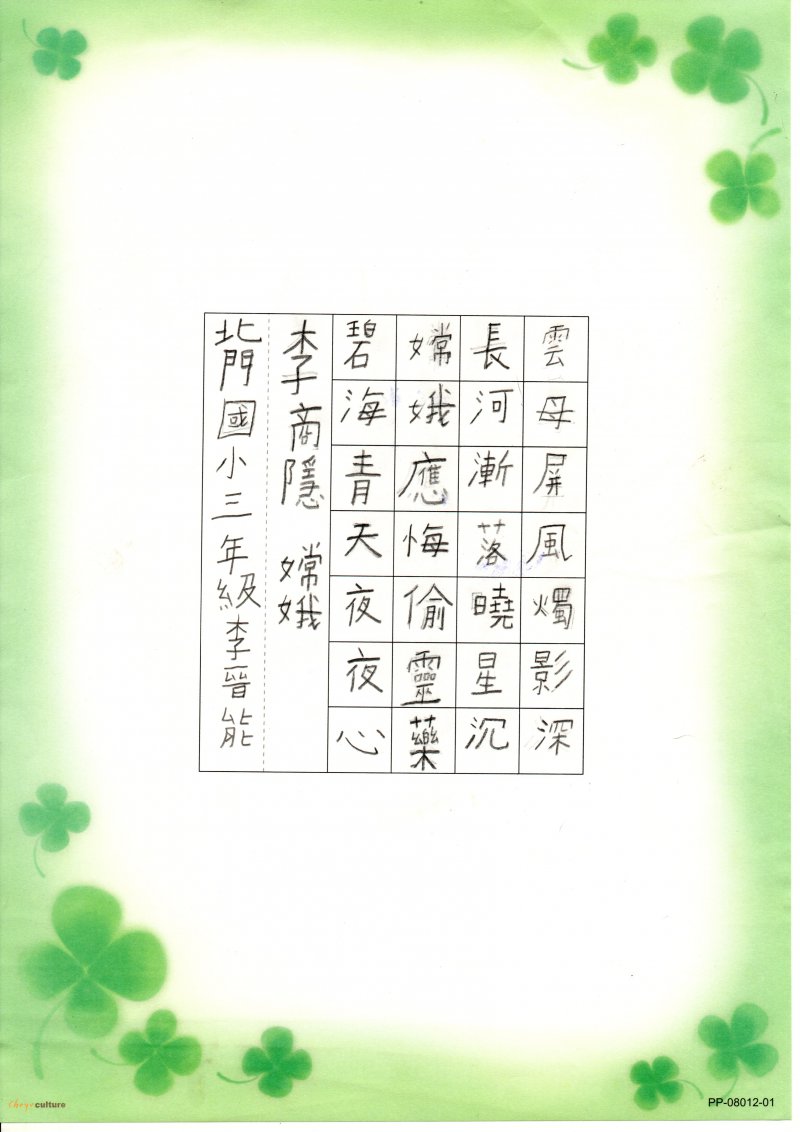 雲母屏風燭影深
長河漸落曉星沉
嫦娥應悔偷靈藥
碧海青天夜夜心
李商隱 嫦娥
北門國小三年級李晉能
culture
PP-08012-01